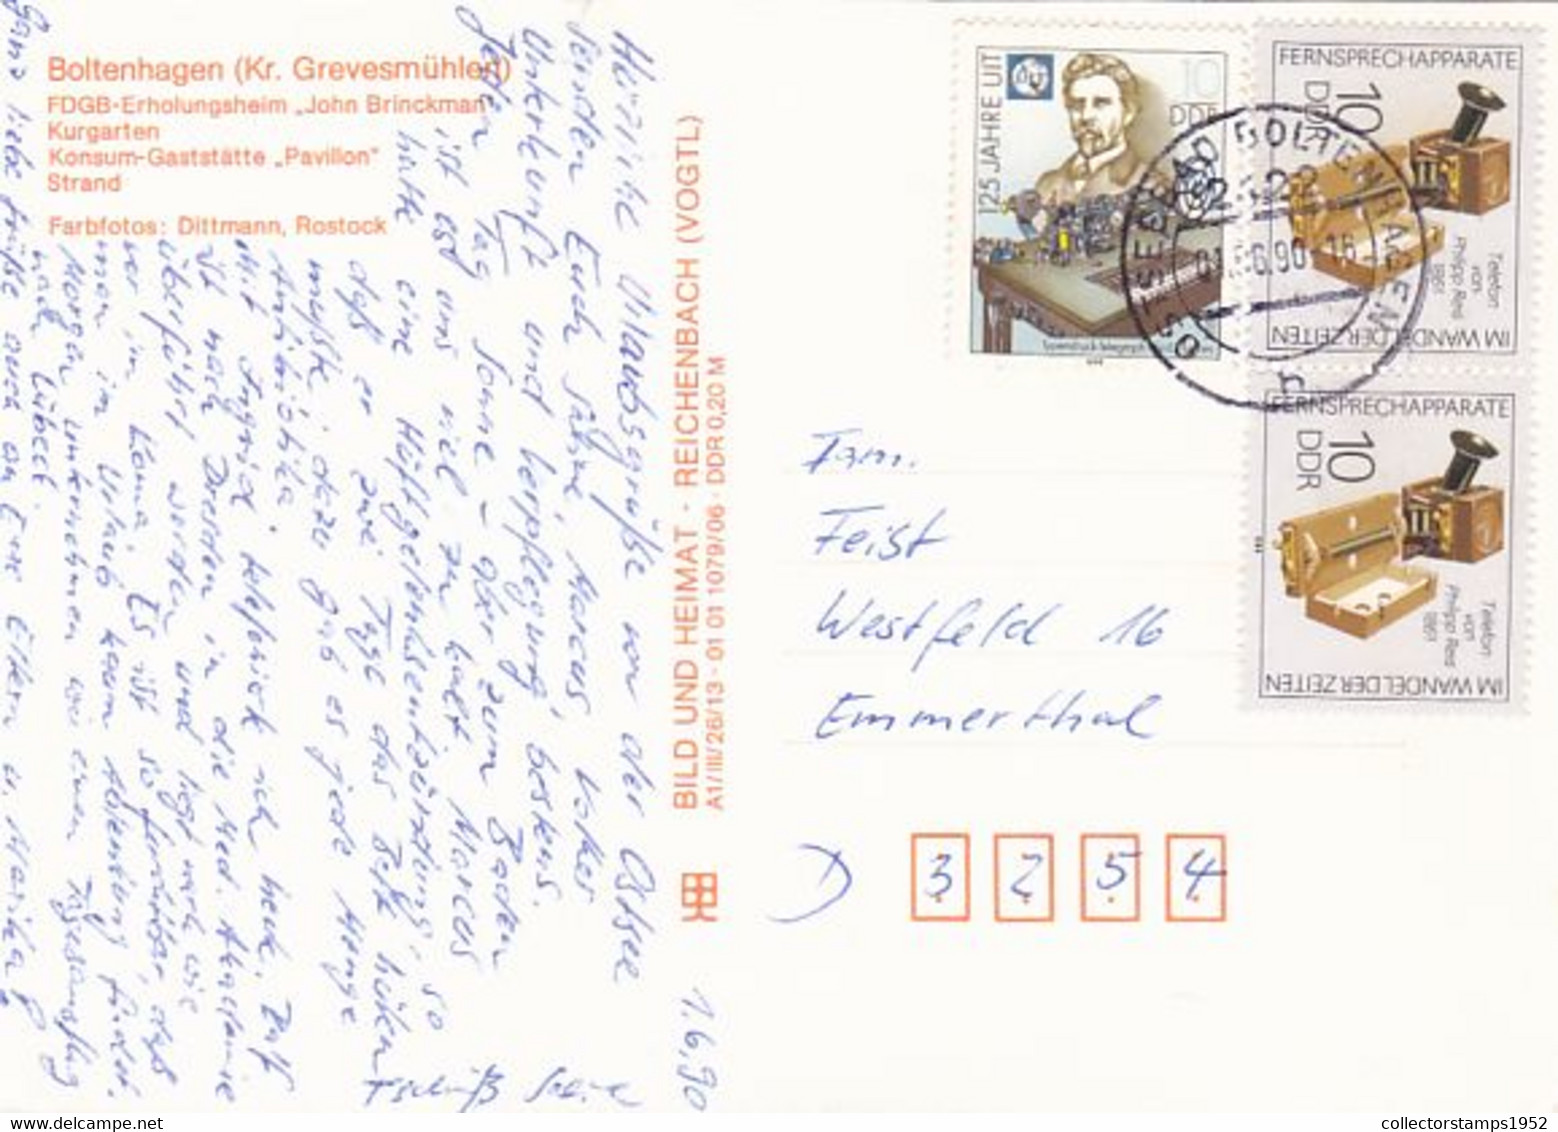 Boltenhagen (Kr. Grevesmühlen)
FDGB-Erholungsheim „John Brinckman"
Kurgarten
Konsum-Gaststätte „Pavillon"
Strand
Farbfotos: Dittmann, Rostock
Herzliche Urlaubsgrüße von der Ostsee
senden Euch Sabine, Marcus, Volker
Unterkunft und Verpflegung bestens.
Jeden Tag Sonne - aber zum Baden
ist es uns viel zu kalt. Marcus
hatte eine Hüftgelenksentzündung, so
daß er zwei Tage das Bett hüten
mußte, dazu gab es jede Menge
Antibiotika.
Mit Ingrid telefonierte ich heute. Rolf
ist nach Dresden in die Med. Akademie
überführt worden und liegt nach wie
vor im Koma. Es ist so furchtbar, daß
man im Urlaub kaum Abstand findet.
Morgen unternehmen wir einen Tagesausflug
nach Lübeck.
Ganz liebe Grüße auch an Eure Eltern u. Marika
Tschüß
1.6.90
BILD UND HEIMAT · REICHENBACH (VOGTL)
A1/III/26/13 · 01 01 1079/06 · DDR 0,20 M
125 JAHRE UIT
10
DDR
FERNSPRECHAPPARATE
10
DDR
Telefon
von
Philipp Reis
1861
IM WANDEL DER ZEITEN
FERNSPRECHAPPARATE
10
DDR
Telefon
von
Philipp Reis
1861
IM WANDEL DER ZEITEN
OSTSEEBAD BOLTENHAGEN
2422
01.-6.90-16
n
Fam.
Feist
Westfeld 16
Emmerthal
D 3 2 5 4
collectorstamps1952